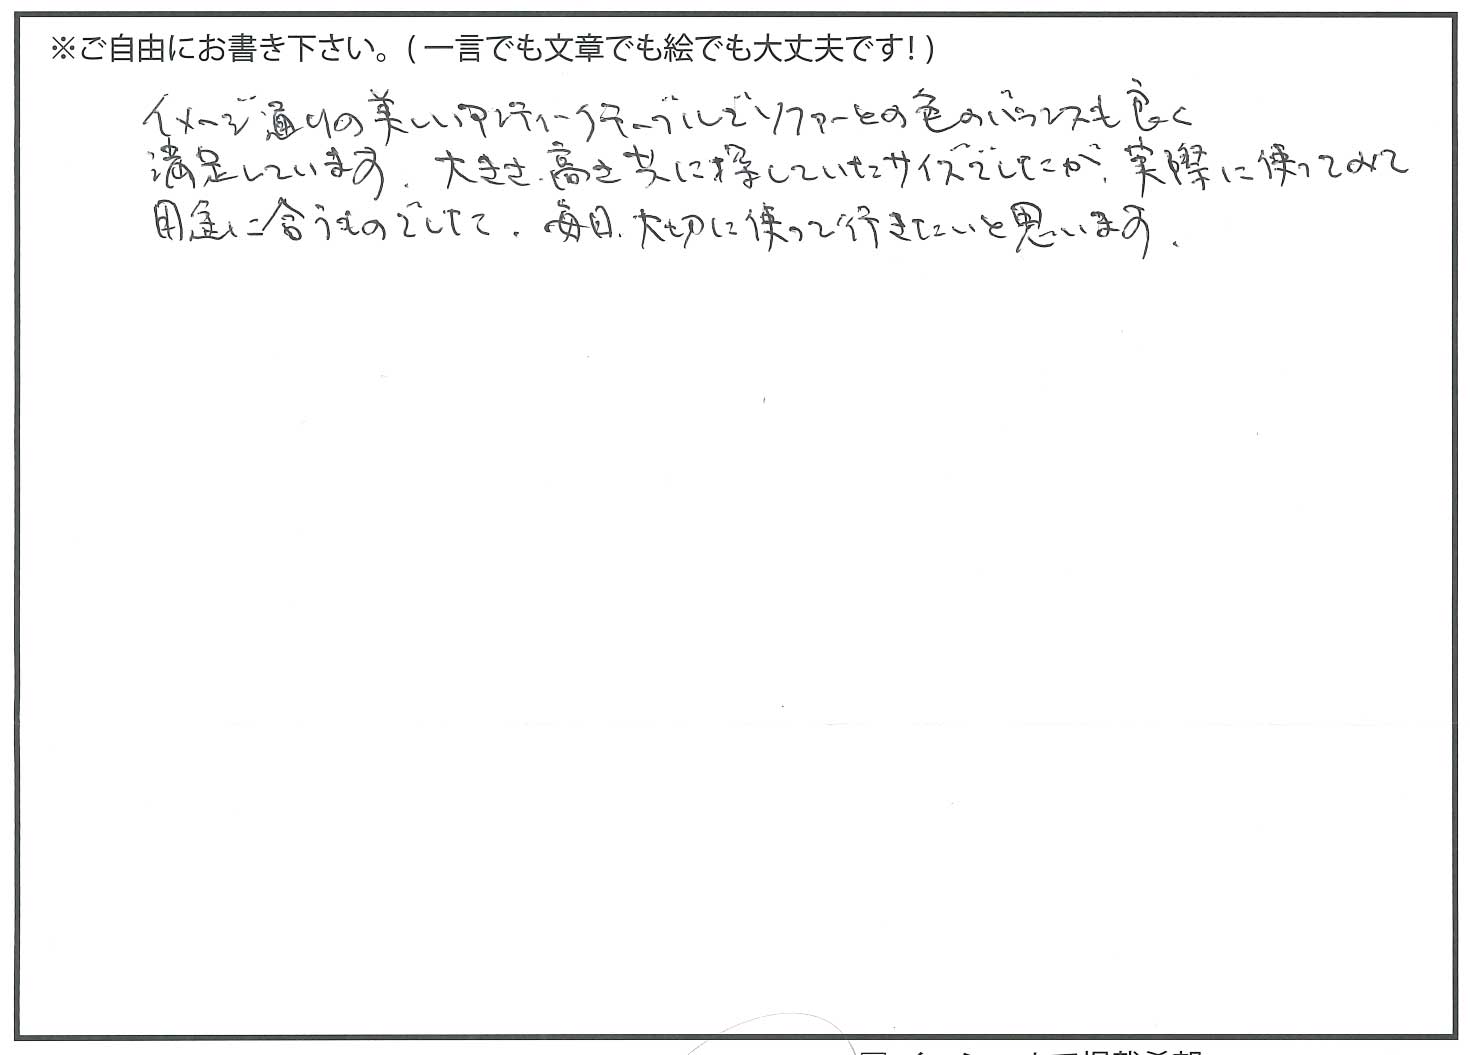 ※ご自由にお書き下さい。(一言でも文章でも絵でも大丈夫です!)
イメージ通りの美しいアンティークテーブルでソファーとの色のバランスも良く
満足しています。大きさ、高さ共に探していたサイズでしたが、実際に使ってみて
用途に合うものでした。毎日、大切に使って行きたいと思います。